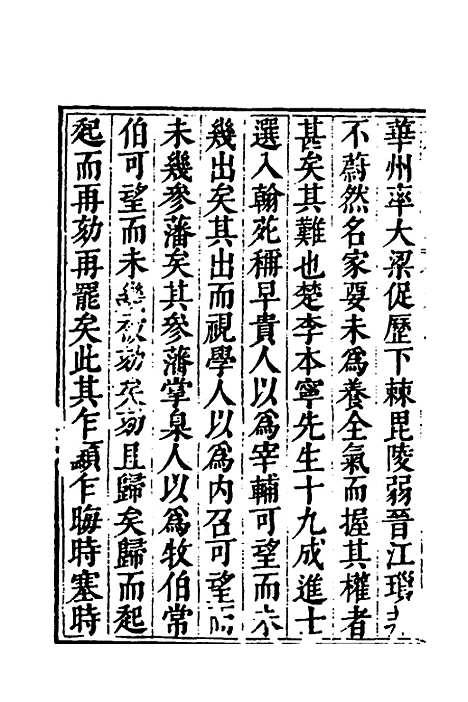 華州率大梁促歷下棘毘陵弱晉江瑣
不蔚然名家要未爲養全氣而握其權者
甚矣其難也楚李本寧先生十九成進士
選入翰苑稱早貴人以爲宰輔可望而未
幾出矣其出而視學人以爲内召可望而
未幾參藩矣其參藩掌臬人以爲牧伯常
伯可望而未幾被劾矣劾且歸矣歸而起
起而再劾再罷矣此其乍顯乍晦時塞時